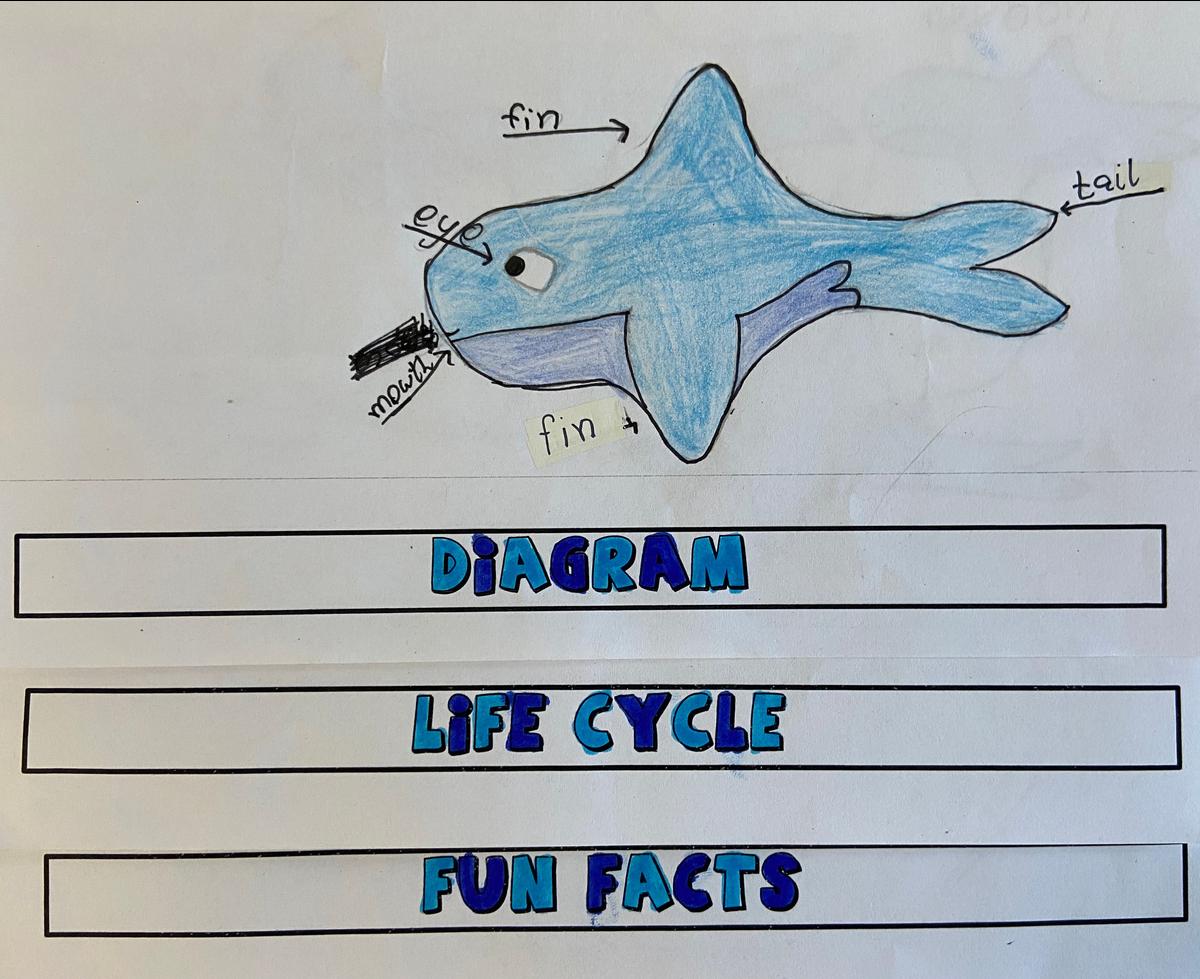 fin
tail
eye
mouth
fin
DiAGRAM
LiFE CYCLE
FUN FACTS